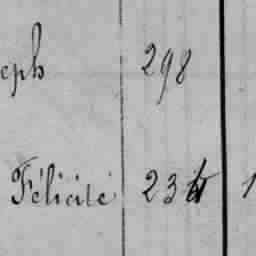 eph 298
Félicité 23